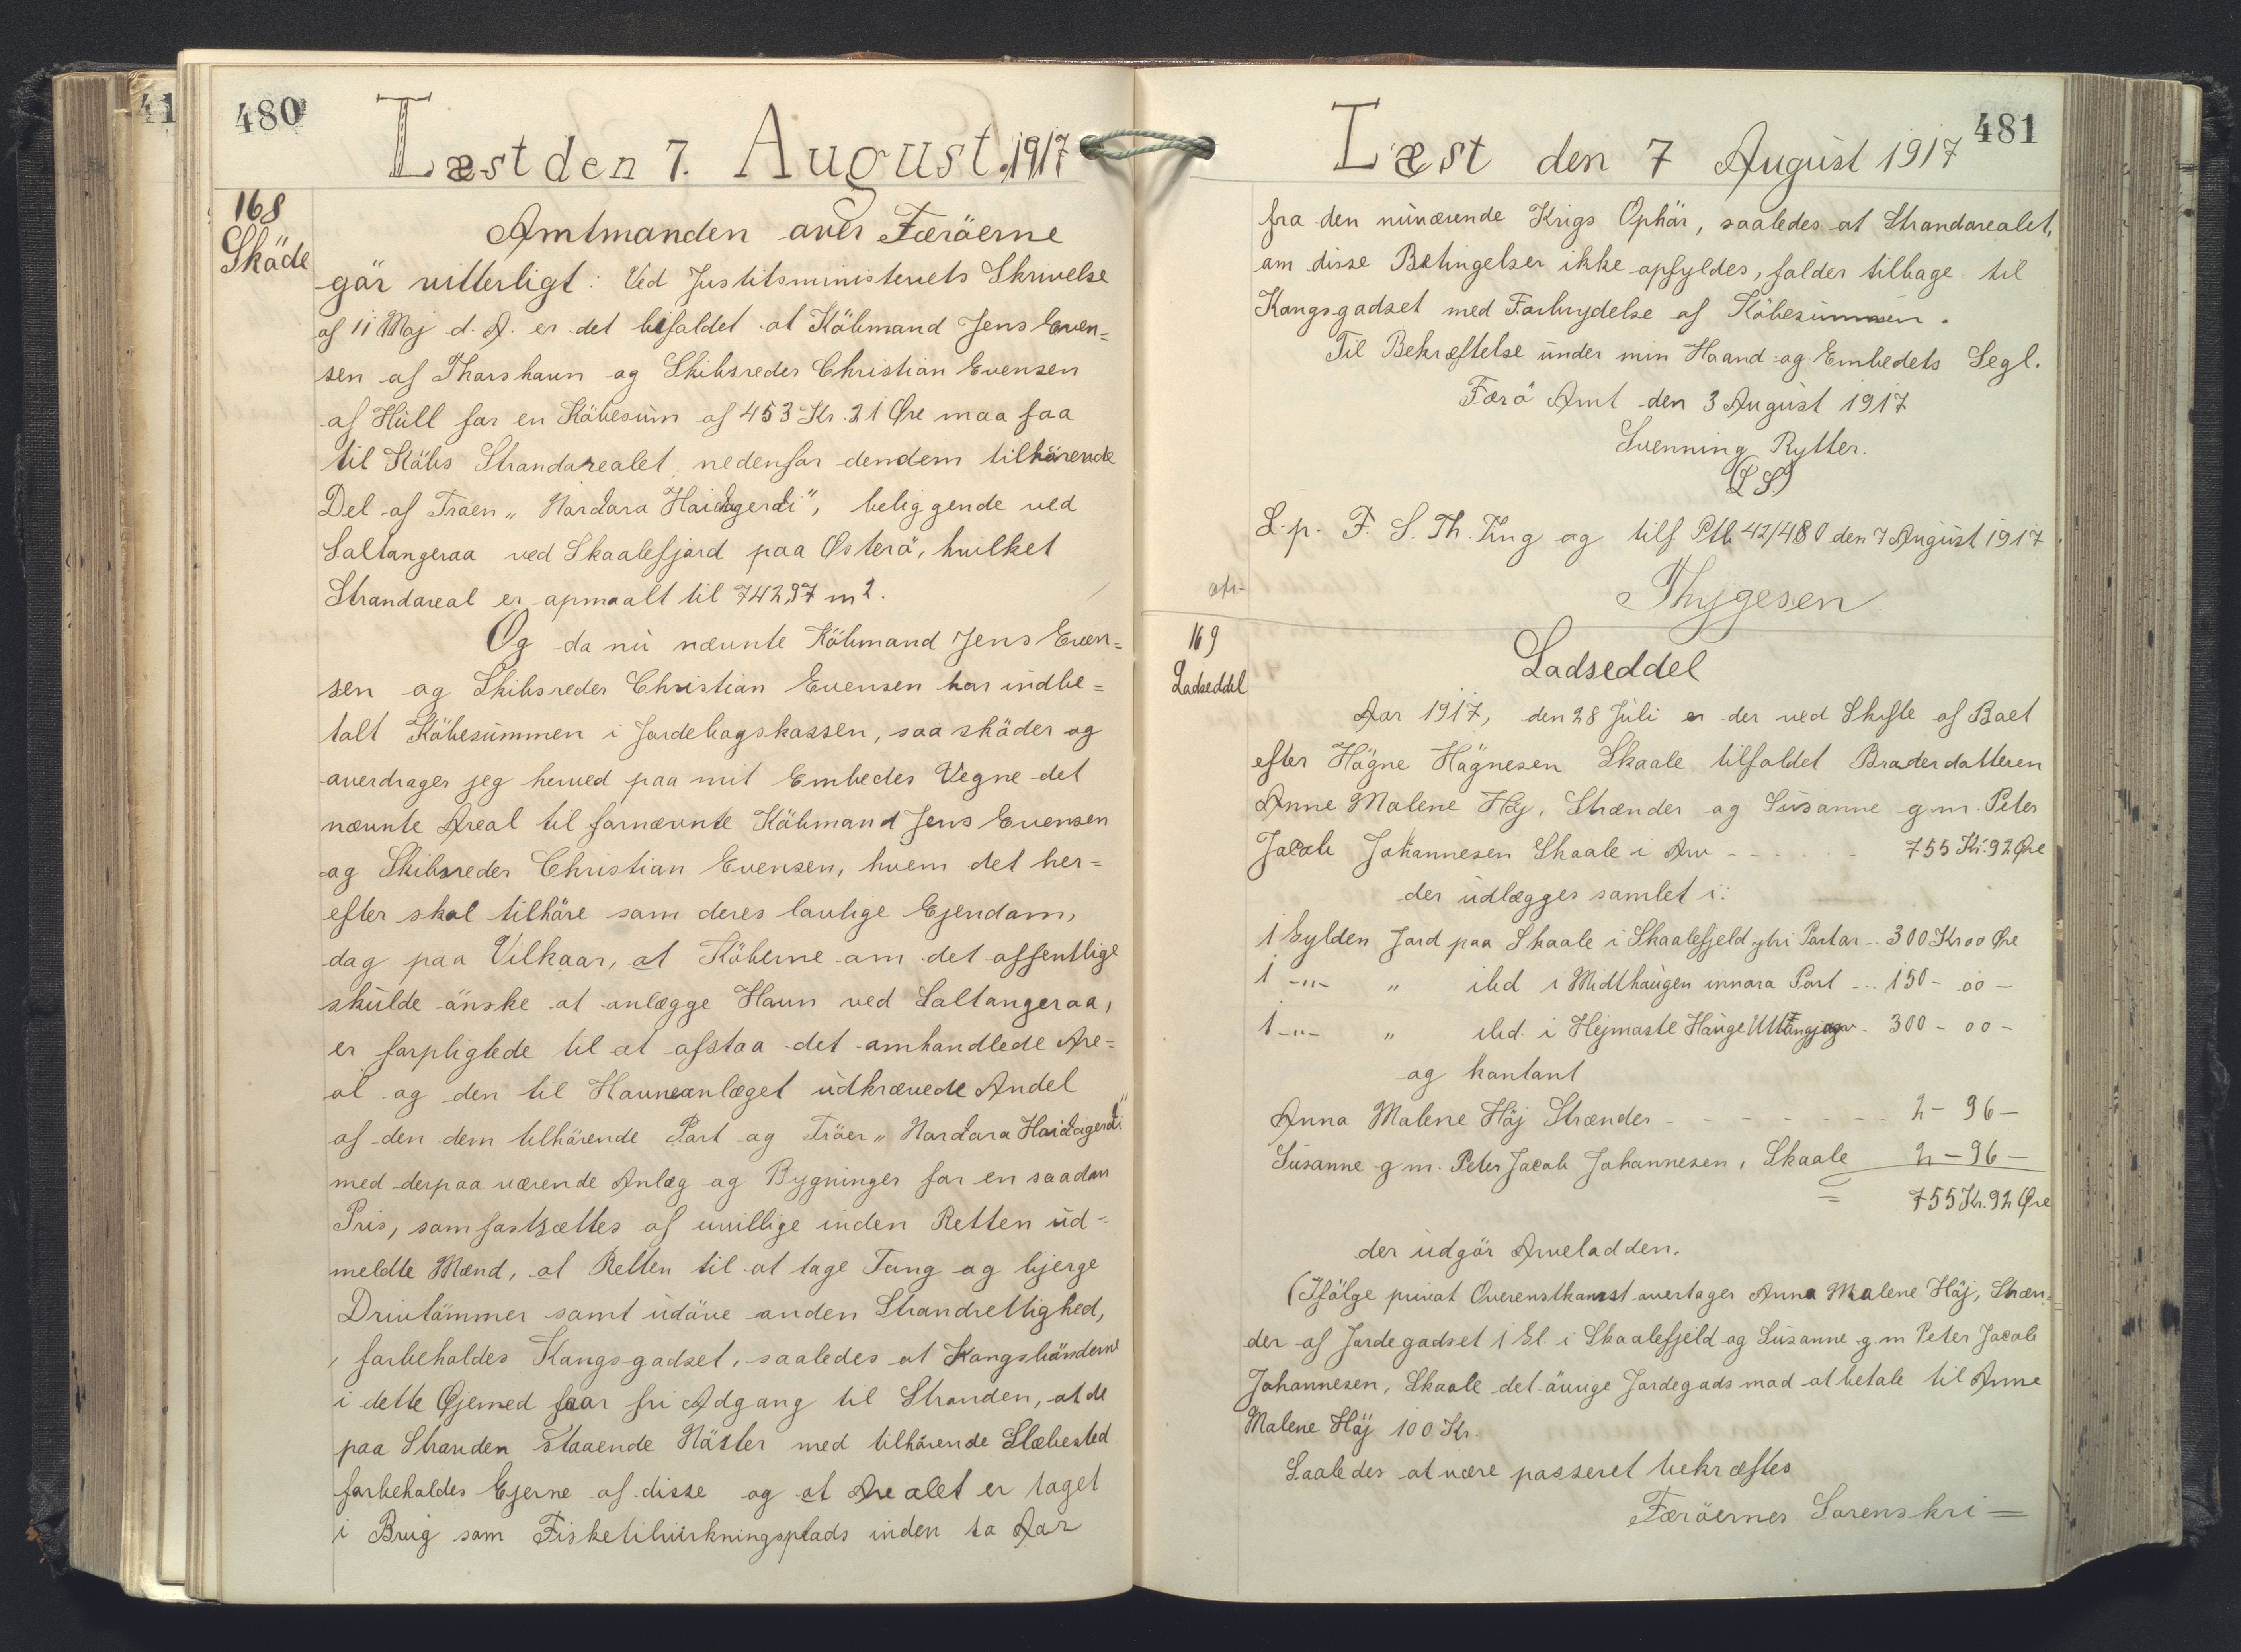 41
480
Læst den 7. August. 1917
168
Skøde
Amtmanden over Færöerne
gör vitterligt: Ved Justitsministeriets Skrivelse
af 11 Maj d. A. er det bifaldet at Köbmand Jens Even=
sen af Thorshavn og Skibsreder Christian Evensen
af Hull for en Köbesum af 453 Kr. 21 Øre maa faa
til Köbs Strandarealet nedenfor den dem tilhörende
Del af Traen „Nordara Haidagerdi“, beliggende ved
Saltangeraa ved Skaalefjord paa Østerö, hvilket
Strandareal er opmaalt til 742,97 m2.
Og da nu nævnte Köbmand Jens Even=
sen og Skibsreder Christian Evensen har indbe=
talt Köbesummen i Jordebogskassen, saa sköder og
overdrager jeg herved paa mit Embedes Vegne det
nævnte Areal til fornævnte Köbmand Jens Evensen
og Skibsreder Christian Evensen, hvem det her=
efter skal tilhöre som deres lovlige Ejendom,
dog paa Vilkaar, at Köberne om det offentlige
skulde önske at anlægge Havn ved Saltangeraa,
er forpligtede til at afstaa det omhandlede Are=
al og den til Havneanlæget udkrævede Andel
af den dem tilhörende Part og Tröer „Nordara Haidagerdi“
med derpaa værende Anlæg og Bygninger for en saadan
Pris, som fastsættes af uvillige inden Retten ud=
meldte Mænd, at Retten til at tage Tang og bjerge
Drivtömmer samt udöve anden Strandrettighed,
forbeholdes Kongsgodset, saaledes at Kongsbönderne
i dette Øjemed faar fri Adgang til Stranden, at de
paa Stranden staaende Nöster med tilhörende Slæbested
forbeholdes Ejerne af disse og at Arealet er taget
i Brug som Fisketilvirkningsplads inden to Aar
481
Læst den 7 August 1917
fra den nuværende Krigs Ophör, saaledes at Strandarealet,
om disse Betingelser ikke opfyldes, falder tilbage til
Kongsgodset med Fortrydelse af Köbesummen.
Til Bekræftelse under min Haand og Embedets Segl.
Færö Amt den 3 August 1917
Svenning Rytter.
(L S)
L. p. F. S. Th. Ting og tilf Ptb. 42/480 den 7 August 1917
afs.
Thygesen
169
Lodseddel
Lodseddel
Aar 1917, den 28 Juli er der ved Skifte af Boet
efter Högne Högnesen Skaale tilfaldet Broderdatteren
Anne Malene Höj, Strænder og Susanne g.m. Peter
Jacob Johannesen Skaale i Arv - - - - - 755 Kr. 92 Øre
der udlægges samlet i:
1 Gylden Jord paa Skaale i Skaalefjeld ytri Partar - 300 Kr 00 Øre
1 -„- „ ibd i Midthaugen innara Part - - 150 - 00 -
1 -„- „ ibd. i Hejmaste Hauge - 300 - 00 -
og kontant
Anna Malene Höj Strænder - - - - - 2 - 96 -
Susanne g m. Peter Jacob Johannesen, Skaale 2 - 96 -
= 755 Kr. 92 Øre
der udgör Arvelodden.
(Ifölge privat Overenstkomst overtager Anna Malene Höj, Stræn=
der af Jordegodset 1 Gl. i Skaalefjeld og Susanne g.m Peter Jacob
Johannesen, Skaale det övrige Jordegods mod at betale til Anne
Malene Höj 100 Kr.
Saaledes at være passeret bekræftes
Færöernes Sorenskri=